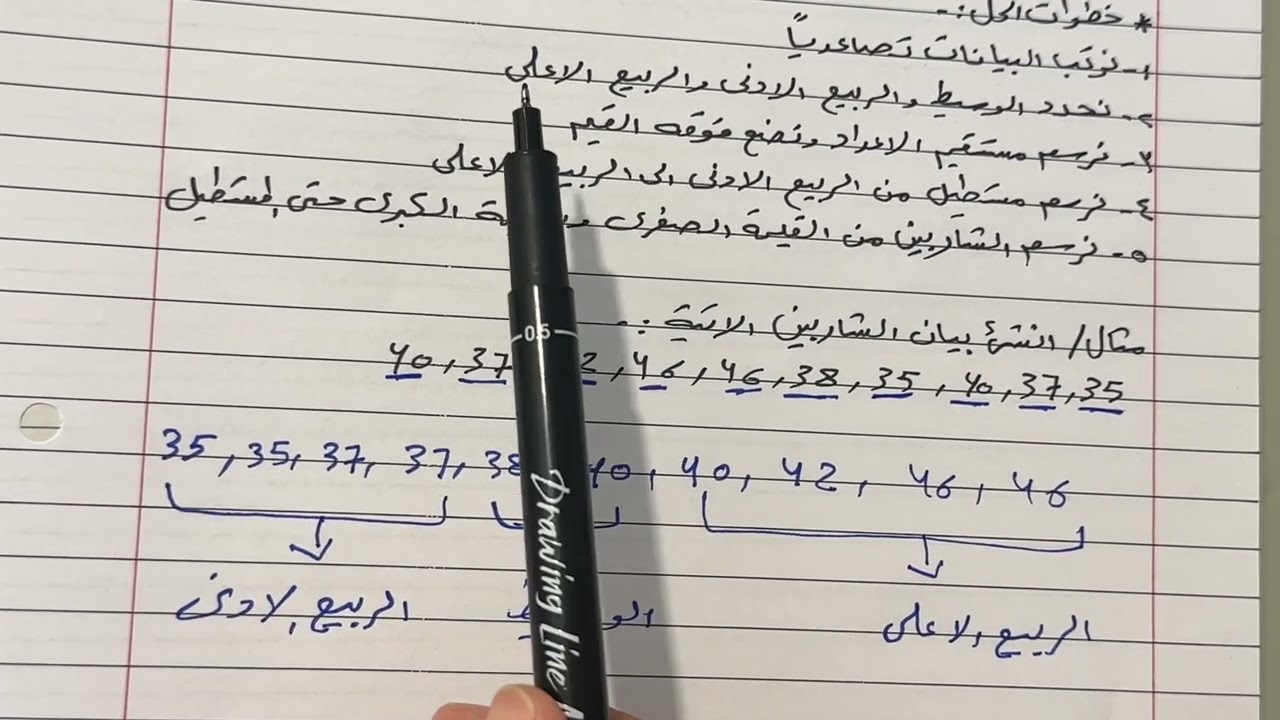 * خطوات الحل :-
١- نرتب البيانات تصاعدياً
٢- نحدد الوسيط والربيع الادنى والربيع الاعلى
٣- نرسم مستقيم الاعداد ونضع فوقه القيم
٤- نرسم مستطيل من الربيع الادنى الى الربيع الاعلى
٥- نرسم الشاربين من القيمة الصغرى الكبرى حتى المستطيل
مثال/ انشئ بيان الشاربين الاتية :-
40 , 37 2 , 46 , 46 , 38 , 35 , 40 , 37 , 35
35 , 35 , 37 , 37 , 38 40 , 40 , 42 , 46 , 46
الربيع الادنى الربيع الاعلى
0.5
Drawing Line